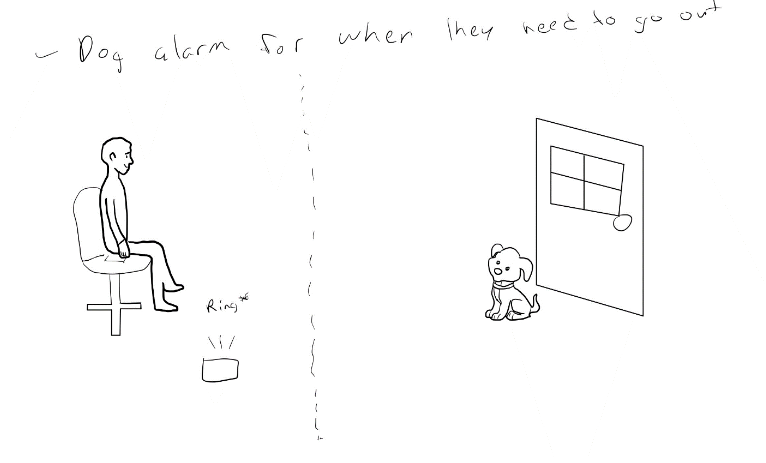 - Dog alarm for when they need to go out
Ring**